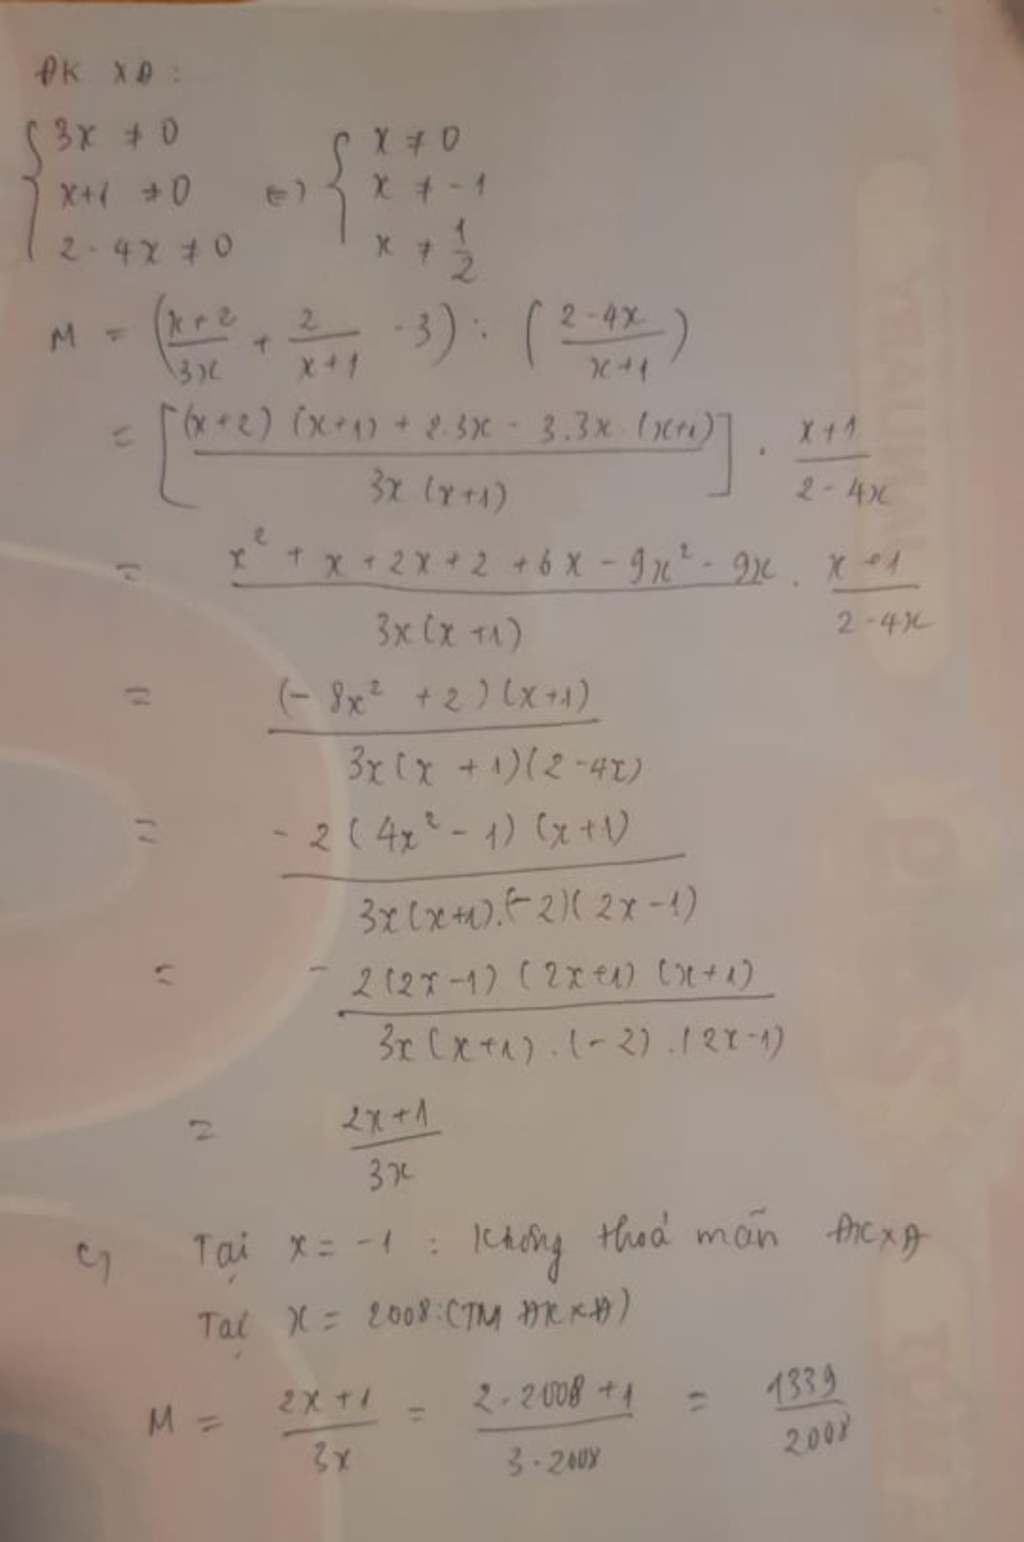 ĐKXĐ:
{3x ≠ 0
x+1 ≠ 0
2-4x ≠ 0
<=> {x ≠ 0
x ≠ -1
x ≠ 1/2
M = ((x+2)/(3x) + 2/(x+1) - 3) : ((2-4x)/(x+1))
= [((x+2)(x+1) + 2.3x - 3.3x.(x+1))/(3x(x+1))] . (x+1)/(2-4x)
= (x² + x + 2x + 2 + 6x - 9x² - 9x)/(3x(x+1)) . (x+1)/(2-4x)
= ((-8x² + 2)(x+1))/(3x(x+1)(2-4x))
= (-2(4x² - 1)(x+1))/(3x(x+1).(-2)(2x-1))
= -(2(2x-1)(2x+1)(x+1))/(3x(x+1).(-2).(2x-1))
= (2x+1)/(3x)
c, Tại x = -1 : Không thoả mãn ĐKXĐ
Tại x = 2008:(TM ĐKXĐ)
M = (2x+1)/(3x) = (2.2008+1)/(3.2008) = 1339/2008